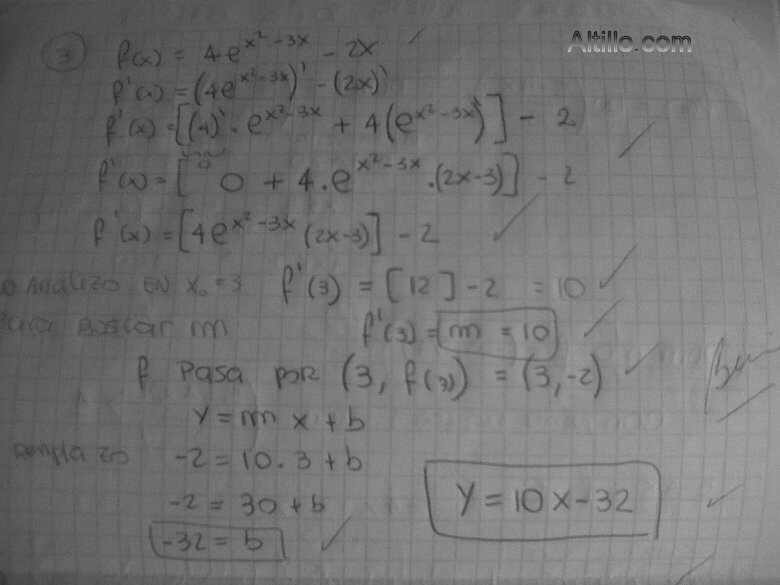 Altillo.com
3 f(x) = 4e^{x²-3x} - 2x
f'(x) = (4e^{x²-3x})' - (2x)'
f'(x) = [(4)'·e^{x²-3x} + 4(e^{x²-3x})'] - 2
f'(x) = [0 + 4.e^{x²-3x}.(2x-3)] - 2
f'(x) = [4e^{x²-3x}(2x-3)] - 2
Lo analizo EN x₀=3 f'(3) = [12] - 2 = 10
Para buscar m f'(3) = m = 10
f PASA por (3, f(3)) = (3,-2)
y = m x + b
-2 = 10.3 + b
-2 = 30 + b
y = 10x - 32
-32 = b